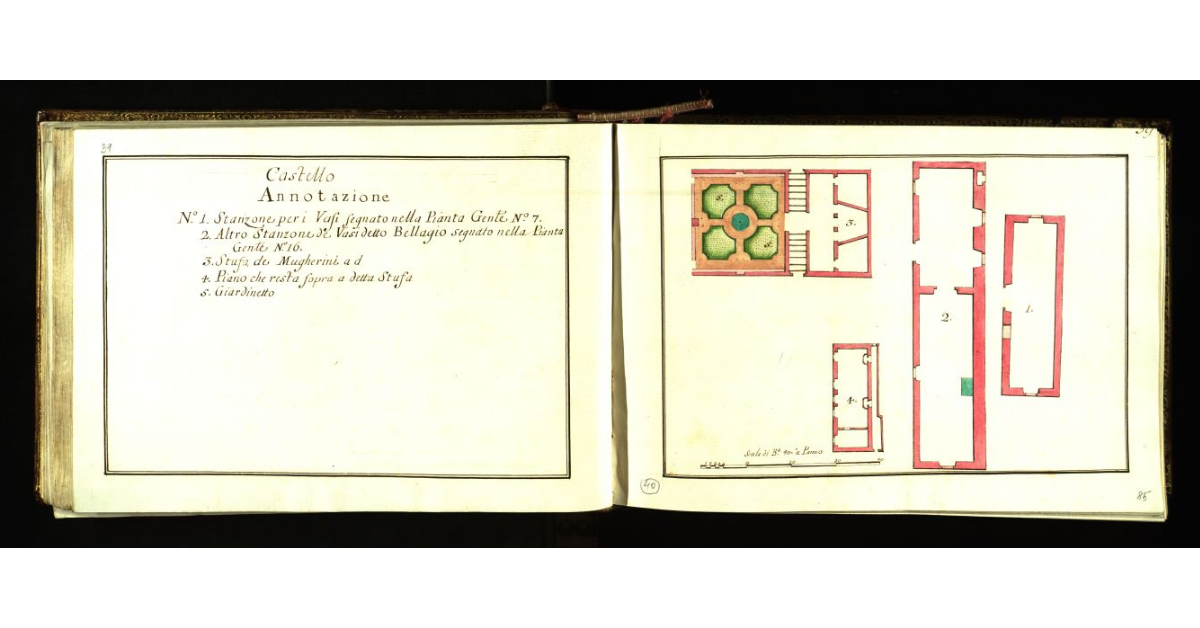 39
Castello
Annotazione
N.º 1. Stanzone per i Vasi segnato nella Pianta Genle N.º 7.
2. Altro Stanzone de Vasi detto Bellagio segnato nella Pianta
Genle Nº 16.
3. Stufa de Mugherini a d
4. Piano che resta sopra a detta Stufa
5. Giardinetto
39
5.
5.
3.
2.
1.
4.
Scala di Bª 40 a Panno
40
85